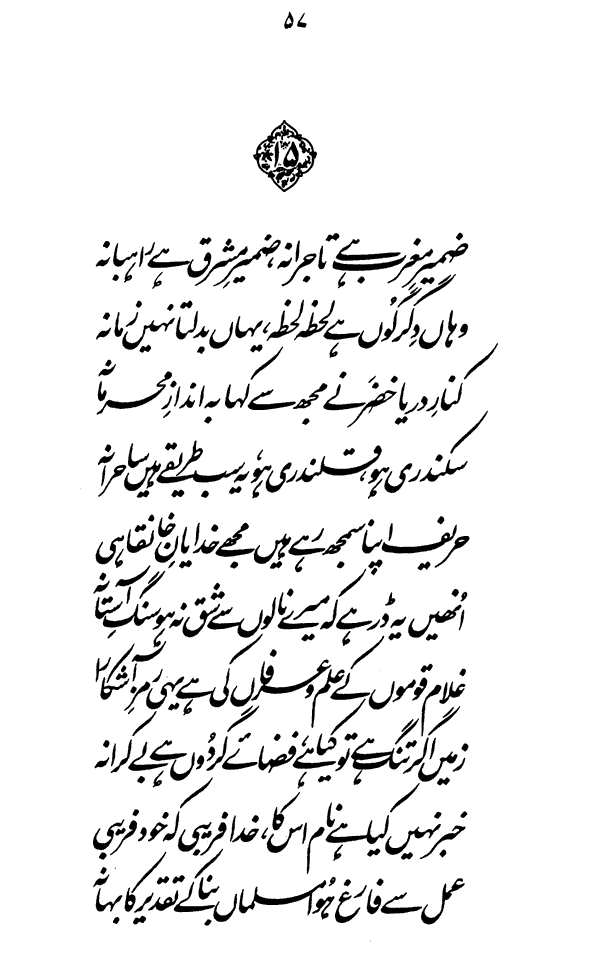 ۵۷
۱۵
ضمیرِ مغرب ہے تاجرانہ، ضمیرِ مشرق ہے راہبانہ
وہاں دِگرگُوں ہے لحظہ لحظہ، یہاں بدلتا نہیں زمانہ
کنارِ دریا خضَر نے مجھ سے کہا بہ اندازِ محرمانہ
سکندری ہو، قلندری ہو، یہ سب طریقے ہیں ساحرانہ
حریف اپنا سمجھ رہے ہیں مجھے خدایانِ خانقاہی
اُنھیں یہ ڈر ہے کہ میرے نالوں سے شق نہ ہو سنگِ آستانہ
غلام قوموں کے علم و عرفاں کی ہے یہی رمزِ آشکارا
زمیں اگر تنگ ہے تو کیا ہے، فضائے گردُوں ہے بے کرانہ
خبر نہیں کیا ہے نام اس کا، خدا فریبی کہ خود فریبی
عمل سے فارغ ہُوا مسلماں بنا کے تقدیر کا بہانہ